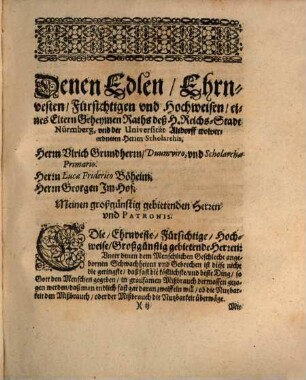 Denen Edlen / Ehrn-
vesten / Fürsichtigen vnd Hochweisen / ei-
nes Eltern Geheymen Raths deß H. Reichs-Stadt
Nürmberg, vnd der Universität Altdorff wolver-
ordneten Herrn Scholarchis,
Herrn Vlrich Grundherrn / Duumviro, vnd Scholarcha
Primario.
Herrn Lucæ Friderico Böheim.
Herrn Georgen Im-Hof.
Meinen großgünstig gebietenden Herren
vnd PATRONIS.
Edle, Ehrnveste / Fürsichtige / Hoch-
weise / Großgünstig gebietende Herren:
Vnter denen dem Menschlichen Geschlecht ange-
bornen Schwachheiten vnd Gebrechen ist diese nicht
die geringste / daß fast die köstlichste vnd beste Ding / so
Gott den Menschen gegeben / in grausamen Mißbrauch dermassen gezo-
gen werden / daß man endlich fast gar daran zweiffeln will / ob die Nutzbar-
keit den Mißbrauch / oder der Mißbrauch die Nutzbarkeit überwäge.
)( ij Mit